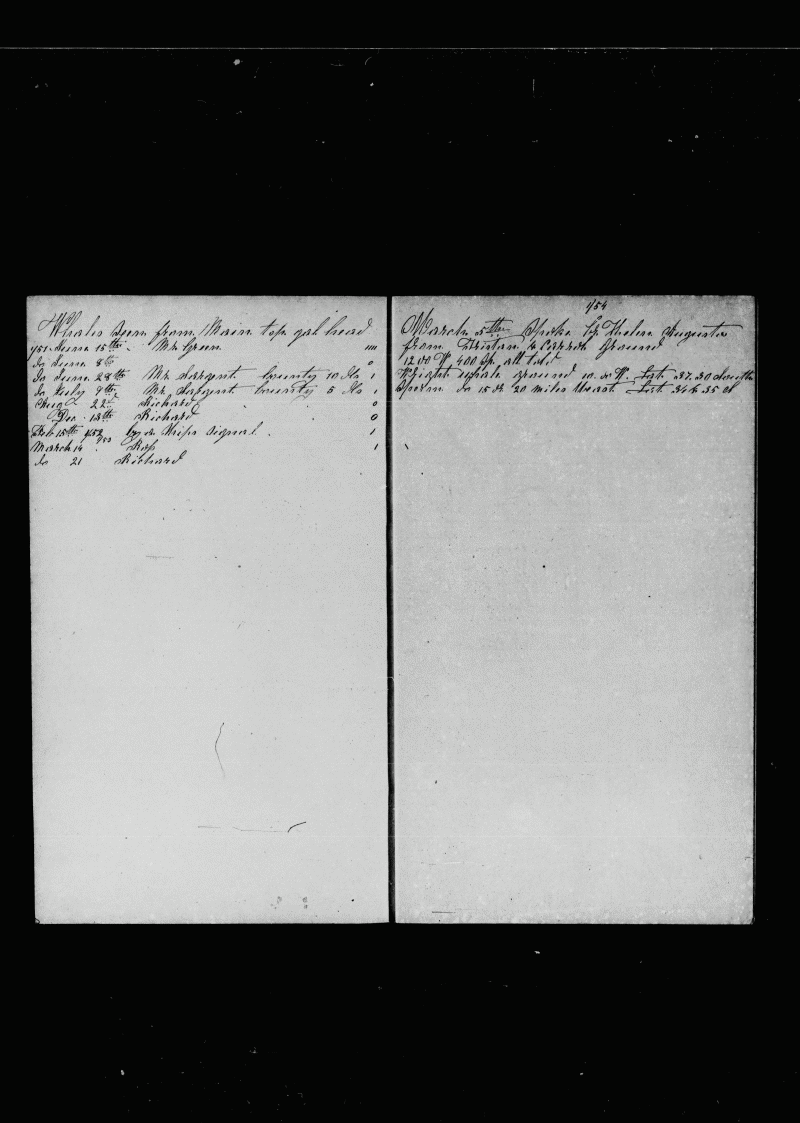 Whales Seen from Main top gal head
1/51 June 15th Mr Green 1111
Do June 8th 0
Do June 28th Mr Sargent bounty 10 lbs 1
Do July 9th Mr Sargent bounty 5 lbs 1
Aug 22d Richard 0
Dec 13th Richard 0
Feb 15th 1/52 by a Ships Signal 1
March 14 1/53 1
Do 21 Richard
1/54
March 5th Spoke Augusta
from Tristan ground
1200 W 400 Sp all told
Wright whale ground Lat 37.30 South
Sperm do 15 or 20 miles Lat 34 & 35